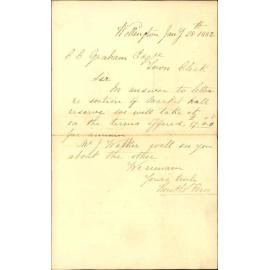 Wellington Jany 28th 1882
Graham Esqre
Town Clerk
Sir
In answer to letter
re section of Market Hall
reserve we will take it
on the terms offered
per annum
Mr J Walker will see you
about the other
We remain
Yours truly